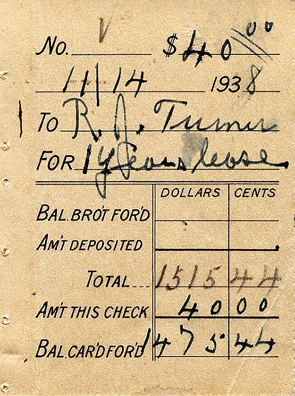 No. V $40 00
11/14 1938
To R. J. Turner
For 1 Years lease
DOLLARS CENTS
BAL. BRO'T FOR'D
AM'T DEPOSITED
TOTAL.... 1515 44
AM'T THIS CHECK 40 00
BAL. CAR'D FOR'D 1475 44